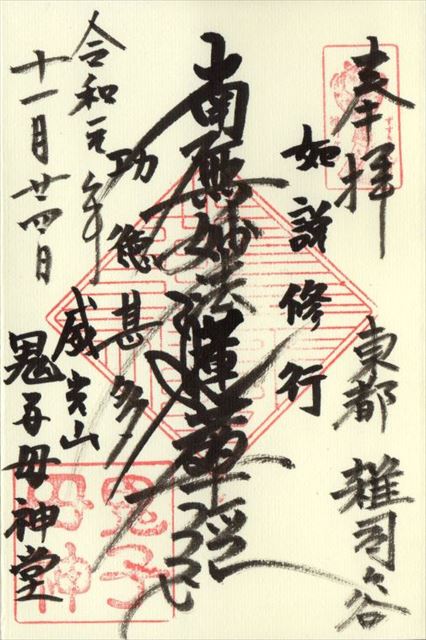 奉拝
東都 雑司ヶ谷
如説修行
南無妙法蓮華経
功徳甚多
威光山
鬼子母神堂
令和元年
十一月廿四日
鬼子
母神